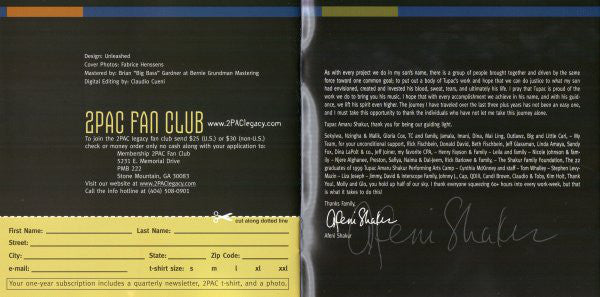 Design: Unleashed
Cover Photos: Fabrice Henssens
Mastered by: Brian "Big Bass" Gardner at Bernie Grundman Mastering
Digital Editing by: Claudio Cueni
2PAC FAN CLUB www.2PAClegacy.com
To join the 2PAC legacy fan club send $25 (U.S.) or $30 (non-U.S.)
check or money order only no cash along with your application to:
Membership 2PAC Fan Club
5231 E. Memorial Drive
PMB 222
Stone Mountain, GA 30083
Visit our website at www.2PAClegacy.com
Call the info hotline at (404) 508-0901
cut along dotted line
First Name: Last Name:
Street:
City: State: Zip Code:
e-mail: t-shirt size: s m l xl xxl
Your one-year subscription includes a quarterly newsletter, 2PAC t-shirt, and a photo.
As with every project we do in my son's name, there is a group of people brought together and driven by the same
force toward one common goal; to put out a body of Tupac's work and hope that we can do justice to what my son
had envisioned, created and invested his blood, sweat, tears, and ultimately his life. I pray that Tupac is proud of the
work we do to bring you his music. I hope that with every accomplishment we achieve in his name, and with his guid-
ance, we lift his spirit even higher. The journey I have traveled over the last three plus years has not been an easy one,
and I must take this opportunity to thank the individuals who have not let me take this journey alone.
Tupac Amaru Shakur, thank you for being our guiding light.
Sekyiwa, Nzingha & Malik, Gloria Cox, TC and family, Jamala, Imani, Dina, Mai Ling, Outlawz, Big and Little Carl, – My
Team, for your unconditional support, Rick Fischbein, Donald David, Beth Fischbein, Jeff Glassman, Linda Amaya, Sandy
Fox, Dina LaPolt & co., Jeff Joiner, my favorite CPA, – Henry Fayson & Family – Leila and family – Nicole Johnson & fam-
ily – Njere Alghanee, Preston, Safiya, Naima & Dal-jeem, Rick Barlowe & Family, – The Shakur Family foundation, The 22
graduates of 1999 Tupac Amaru Shakur Performing Arts Camp – Cynthia McKinney and staff – Tom Whalley – Stephen Levy-
Mazin – Liza Joseph – Jimmy, David & Interscope Family, Johnny L, Cap, QDIII, Candi Brown, Claudio & Toby, Kim Holt, Thank
You!, Molly and Glo, you hold up half of our sky. I thank everyone squeezing 60+ hours into every work-week, but that
is what it takes to do this!
Thanks Family,
Afeni Shakur
Afeni Shakur
Afeni Shakur